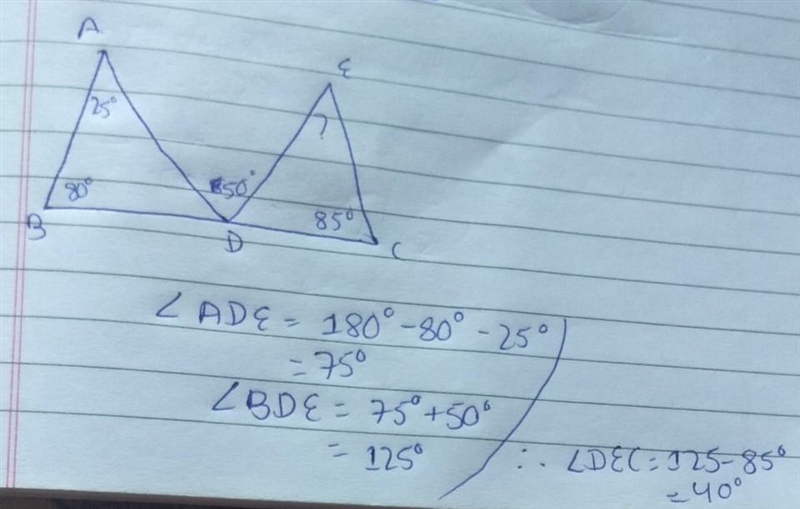 A
ε
25°
?
80°
50°
85°
B
D
C
∠ADε = 180° - 80° - 25°
= 75°
∠BDε = 75° + 50°
= 125°
∴ ∠DEC = 125 - 85°
= 40°